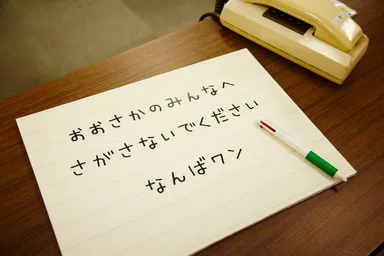 おおさかのみんなへ
さがさないでください
なんばワン